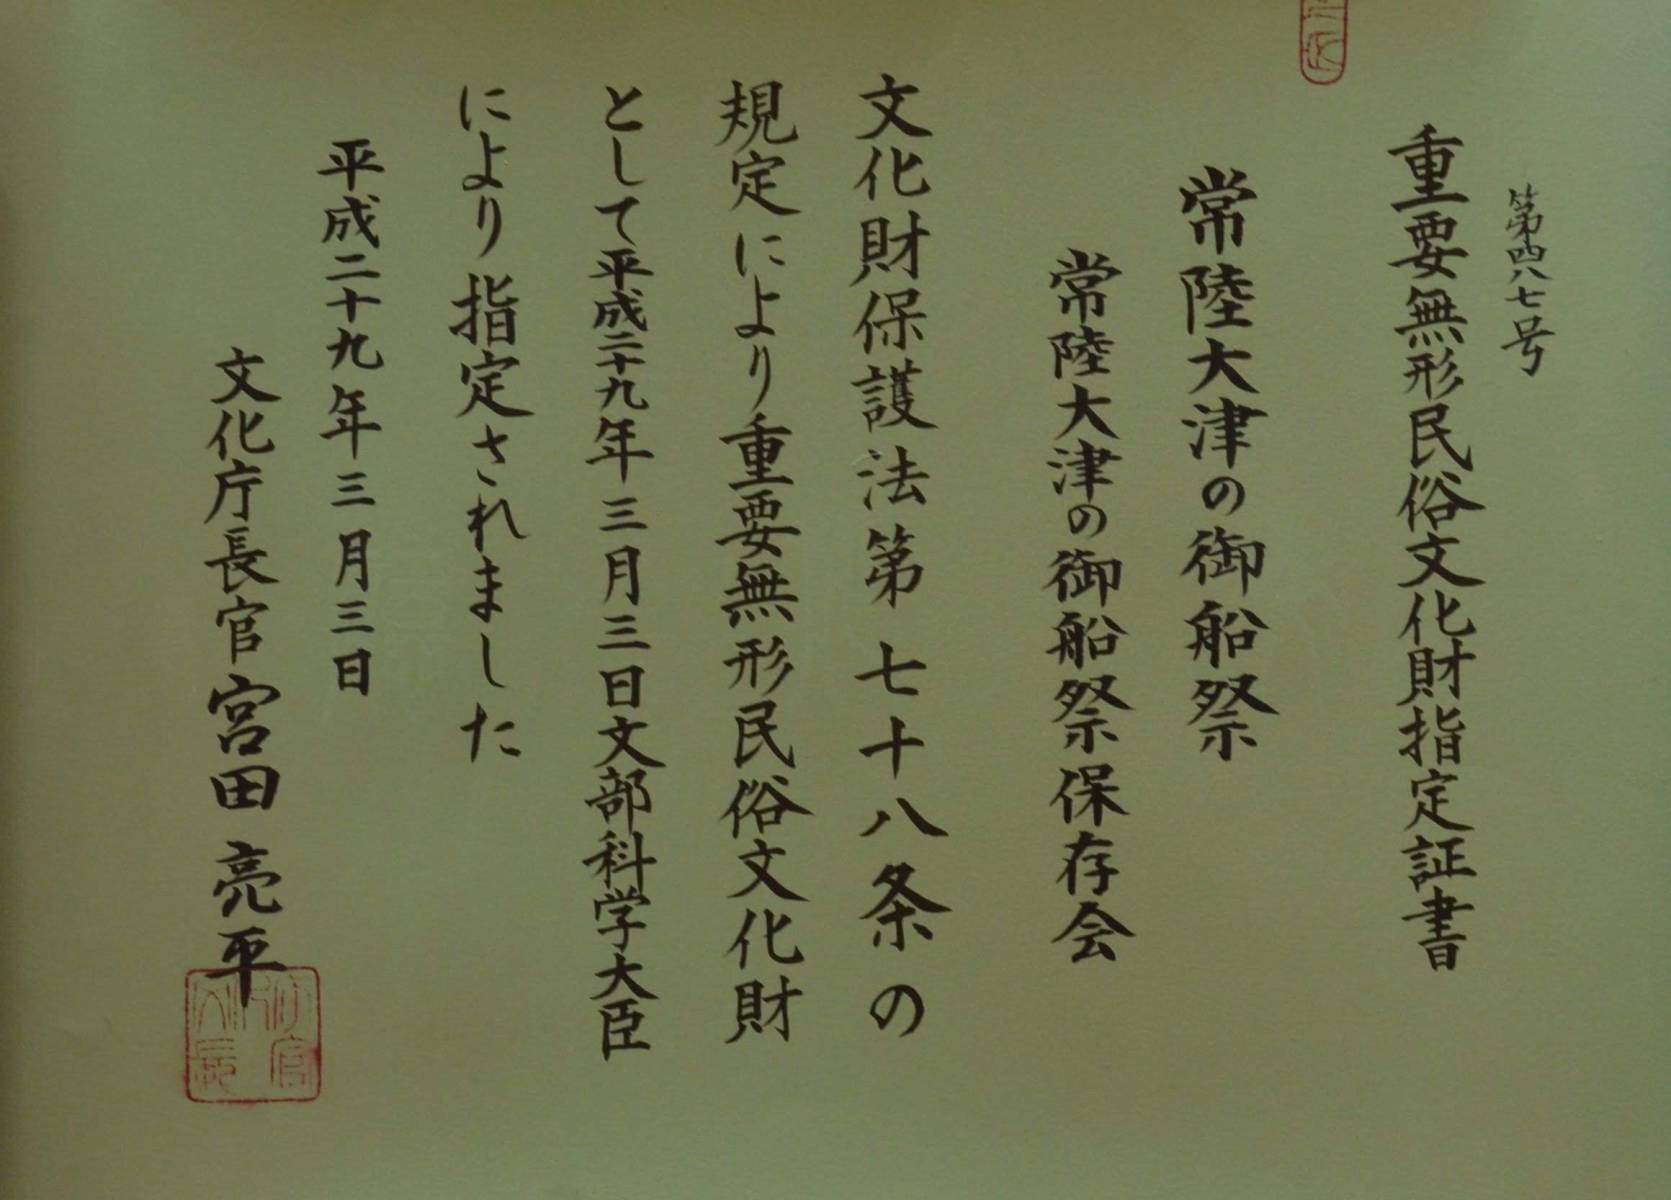 第四八七号
重要無形民俗文化財指定証書
常陸大津の御船祭
常陸大津の御船祭保存会
文化財保護法第七十八条の
規定により重要無形民俗文化財
として平成二十九年三月三日文部科学大臣
により指定されました
平成二十九年三月三日
文化庁長官 宮田亮平